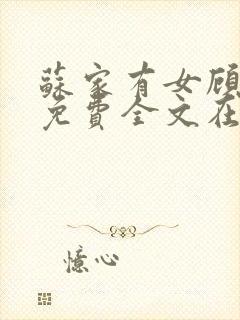 蘇家有女顧
免費全文在
憶心